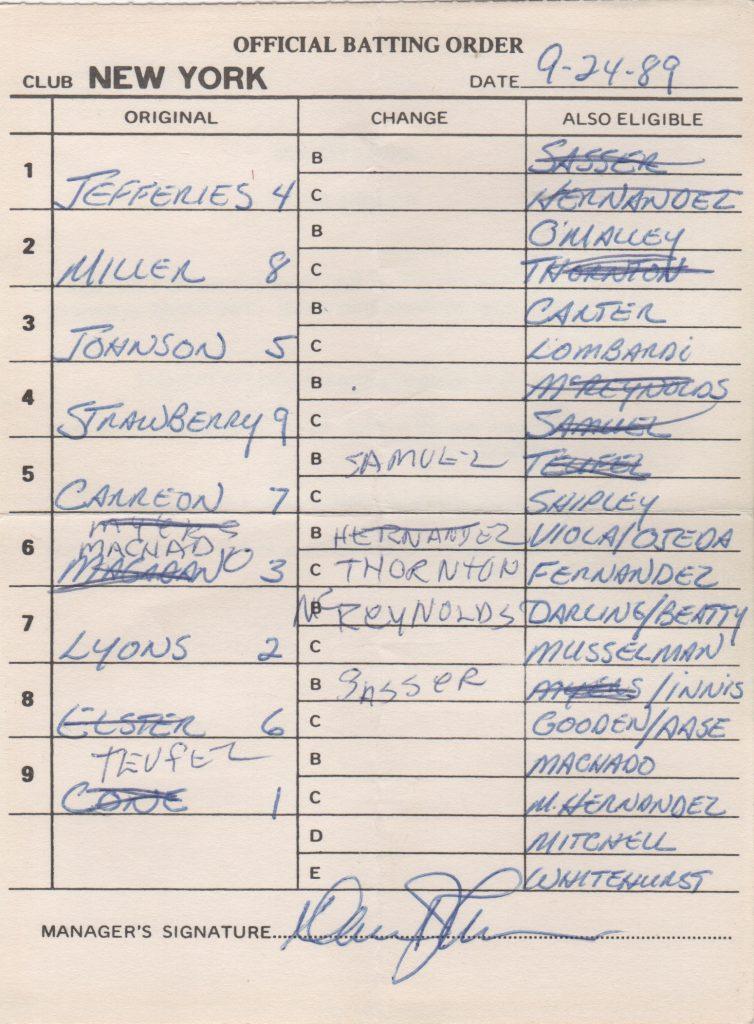 OFFICIAL BATTING ORDER
CLUB NEW YORK DATE 9-24-89
ORIGINAL CHANGE ALSO ELIGIBLE
1 JEFFERIES 4 B SASSER
C HERNANDEZ
2 MILLER 8 B O'MALLEY
C THORNTON
3 JOHNSON 5 B CARTER
C LOMBARDI
4 STRAWBERRY 9 B McREYNOLDS
C SAMUEL
5 CARREON 7 B SAMUEL TEUFEL
C SHIPLEY
6 MYERS B HERNANDEZ VIOLA/OJEDA
MACHADO
MAGADAN 3 C THORNTON FERNANDEZ
7 LYONS 2 B McREYNOLDS DARLING/BEATTY
C MUSSELMAN
8 ELSTER 6 B SASSER MYERS/INNIS
C GOODEN/AASE
9 TEUFEL B MACHADO
CONE 1 C M.HERNANDEZ
D MITCHELL
E WHITEHURST
MANAGER'S SIGNATURE